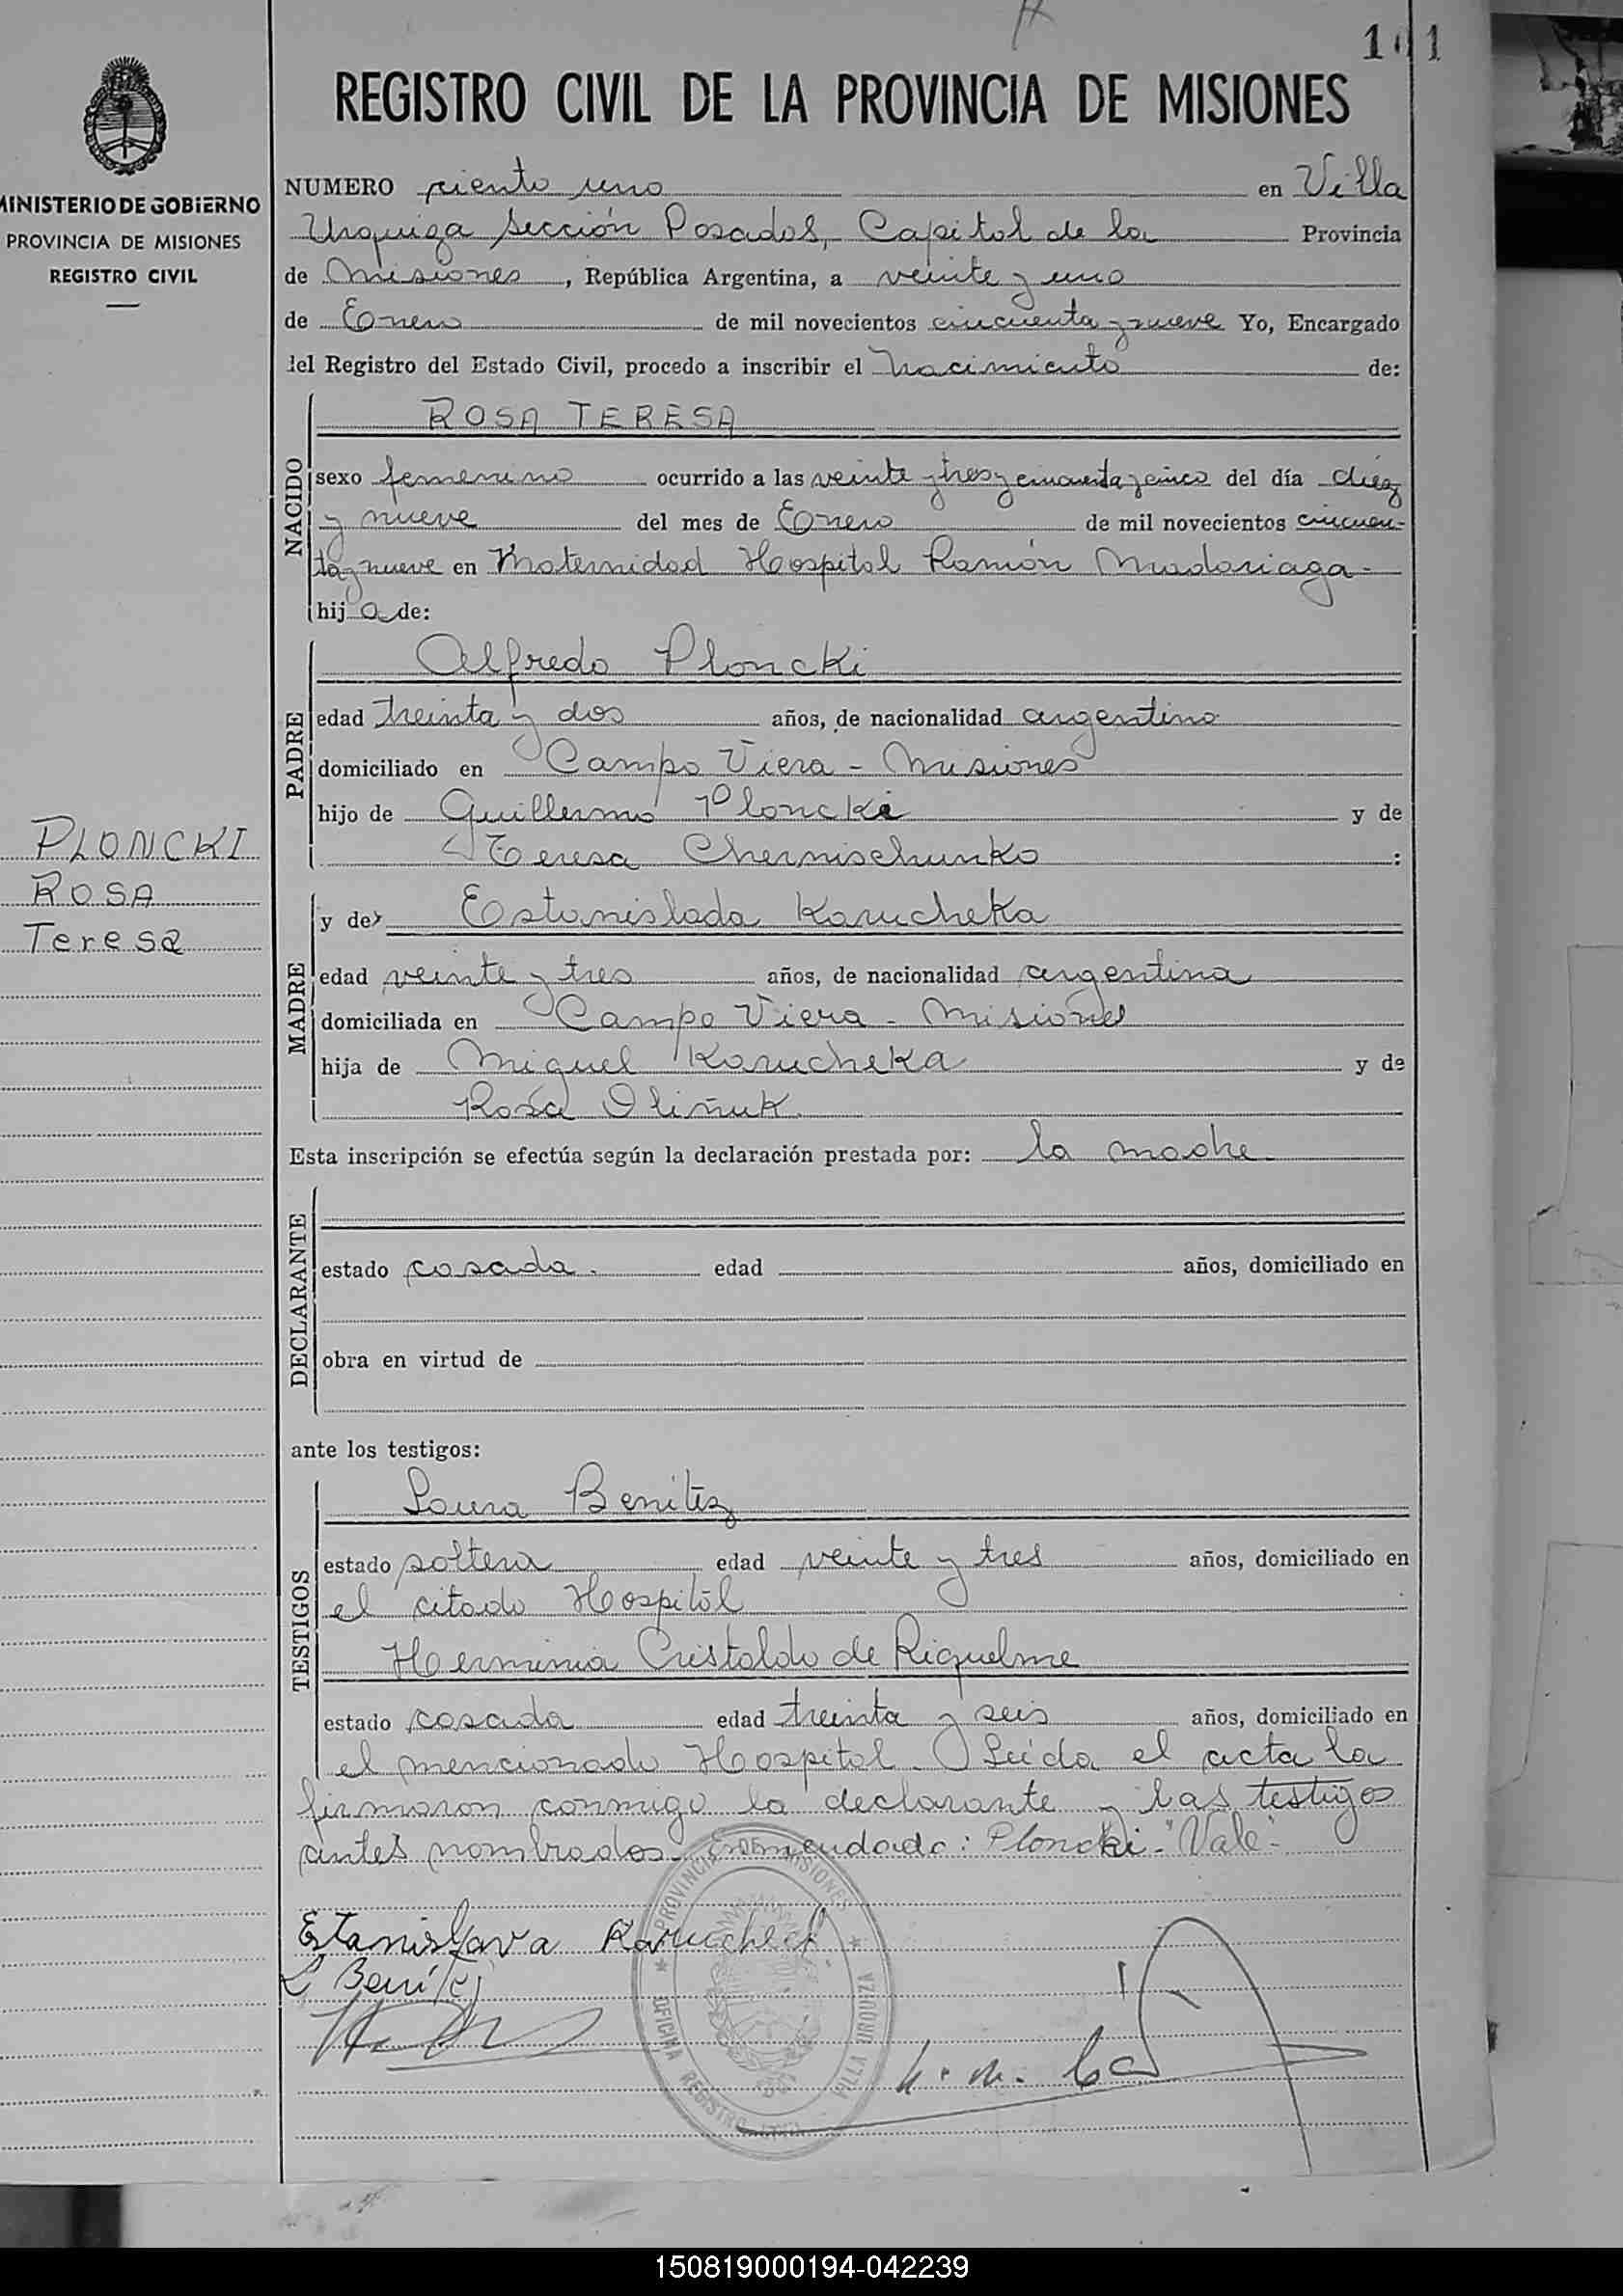 101
REGISTRO CIVIL DE LA PROVINCIA DE MISIONES
MINISTERIO DE GOBIERNO
PROVINCIA DE MISIONES
REGISTRO CIVIL
NUMERO ciento uno en Villa
Urquiza Sección Posadas, Capital de la Provincia
de Misiones, República Argentina, a veinte y uno
de Enero de mil novecientos cincuenta y nueve Yo, Encargado
del Registro del Estado Civil, procedo a inscribir el nacimiento de:
NACIDO
ROSA TERESA
sexo femenino ocurrido a las veinte y tres y cincuenta y cinco del día diez
y nueve del mes de Enero de mil novecientos cincuen-
ta y nueve en Maternidad Hospital Ramón Madariaga-
hija de:
PADRE
Alfredo Ploncki
edad treinta y dos años, de nacionalidad argentino
domiciliado en Campo Viera - Misiones
hijo de Guillermo Ploncki y de
Teresa Chernischunko :
PLONCKI
ROSA
Teresa
MADRE
y de Estanislada Karucheka
edad veinte y tres años, de nacionalidad argentina
domiciliada en Campo Viera - Misiones
hija de Miguel Karucheka y de
Rosa Oliñuk
Esta inscripción se efectúa según la declaración prestada por: la madre
DECLARANTE
estado casada. edad años, domiciliado en
obra en virtud de
ante los testigos:
TESTIGOS
Laura Benítez
estado soltera edad veinte y tres años, domiciliado en
el citado Hospital
Herminia Cristaldo de Riquelme
estado casada edad treinta y seis años, domiciliado en
el mencionado Hospital. Leída el acta la
firmaron conmigo la declarante y las testigos
antes nombrados. Enmendado: Ploncki-"Vale"-
Estanislava Karucheka
L Benítez
PROVINCIA DE MISIONES
OFICINA REGISTRO CIVIL - VILLA URQUIZA
150819000194-042239